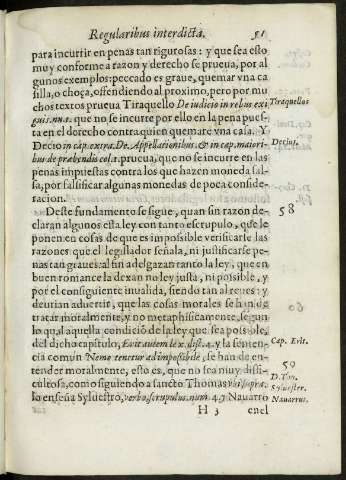 Regularibus interdicta. 51
para incurrir en penas tan rigurosas: y que sea esto
muy conforme a razon y derecho se prueua, por al
gunos exemplos: peccado es graue, quemar vna ca
silla, o choça, offendiendo al proximo, pero por mu
chos textos prueua Tiraquello De iudicio in rebus exi
guis. nu. que no se incurre por ello en la pena pues-
ta en el derecho contra quien quemare vna casa. Y
Decio in cap. extra. De Appellationibus & in cap. maiori-
bus de præbendis prueua, que no se incurre en las
penas impuestas contra los que hazen moneda fal-
sa, por falsificar algunas monedas de poca conside-
racion.
Deste fundamento se sigue, quan sin razon de-
claran algunos esta ley con tanto escrupulo, que le
ponen en cosas de que es impossible verificarse las
razones que el legislador señala, ni justificarse pe-
nas tan graues: al fin adelgazan tanto la ley, que en
buen romance la dexan no ley justa, ni possible, y
por el consiguiente inualida, siendo tan al reues: y
deurian aduertir, que las cosas morales se han de
tratar moralmente, y no metaphisicamente, segun
lo qual aquella condició de la ley que sea possible,
del dicho capitulo, Erit autem lex. dist. 4. y la senten-
cia común Nemo tenetur ad impossibile, se han de en-
tender moralmente, esto es, que no sea muy diffi-
cultosa, como siguiendo a sancto Thomas vbi supra,
lo enseña Syluestro, verbo, scrupulus. num 4. y Nauarro
H 3 enel
Tiraquellos
Decius.
58
Cap. Erit.
59
D. Tho.
Syluester.
Nauarrus